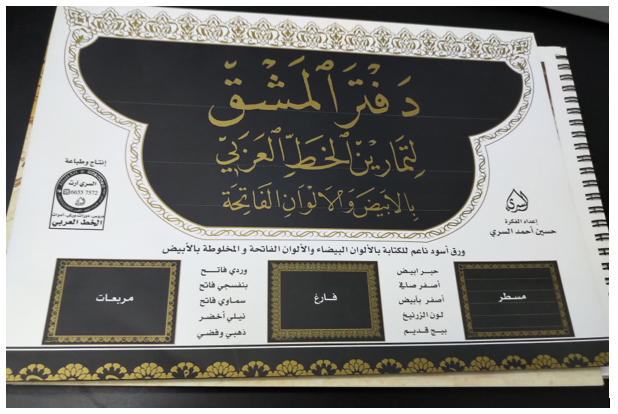 دفتر المشق
لتمارين الخط العربي
بالأبيض والألوان الفاتحة
إعداد الفكرة
حسين أحمد السري
إنتاج وطباعة
السري آرت
6655 7572
الخط العربي
ورق أسود ناعم للكتابة بالألوان البيضاء والألوان الفاتحة و المخلوطة بالأبيض
مسطر
حبر ابيض
أصفر صافي
أصفر بأبيض
لون الزرنيخ
بيج قديم
فارغ
وردي فاتح
بنفسجي فاتح
سماوي فاتح
نيلي أخضر
ذهبي وفضي
مربعات